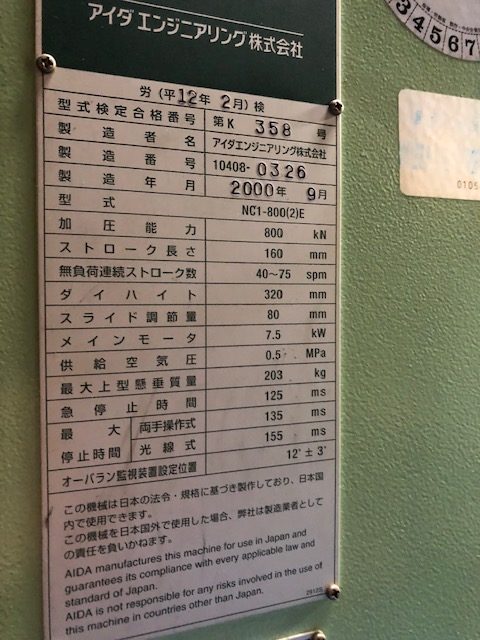 アイダ エンジニアリング 株式会社
労 (平12年 2月) 検
型式検定合格番号 第K 358 号
製造者名 アイダエンジニアリング株式会社
製造番号 10408-0326
製造年月 2000年 9月
型式 NC1-800(2)E
加圧能力 800 kN
ストローク長さ 160 mm
無負荷連続ストローク数 40～75 spm
ダイハイト 320 mm
スライド調節量 80 mm
メインモータ 7.5 kW
供給空気圧 0.5 MPa
最大上型懸垂質量 203 kg
急停止時間 125 ms
最大停止時間 両手操作式 135 ms
光線式 155 ms
オーバラン監視装置設定位置 12° ± 3°
この機械は日本の法令・規格に基づき製作しており、日本国
内で使用できます。
この機械を日本国外で使用した場合、弊社は製造業者として
の責任を負いかねます。
AIDA manufactures this machine for use in Japan and
guarantees its compliance with every applicable law and
standard of Japan.
AIDA is not responsible for any risks involved in the use of
this machine in countries other than Japan.
3 4 5 6 7
0105